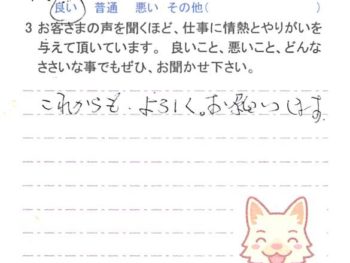 良い 普通 悪い その他( )
3 お客さまの声を聞くほど、仕事に情熱とやりがいを
与えて頂いています。 良いこと、悪いこと、どんな
ささいな事でもぜひ、お聞かせ下さい。
これからも、よろしく。お願いします。